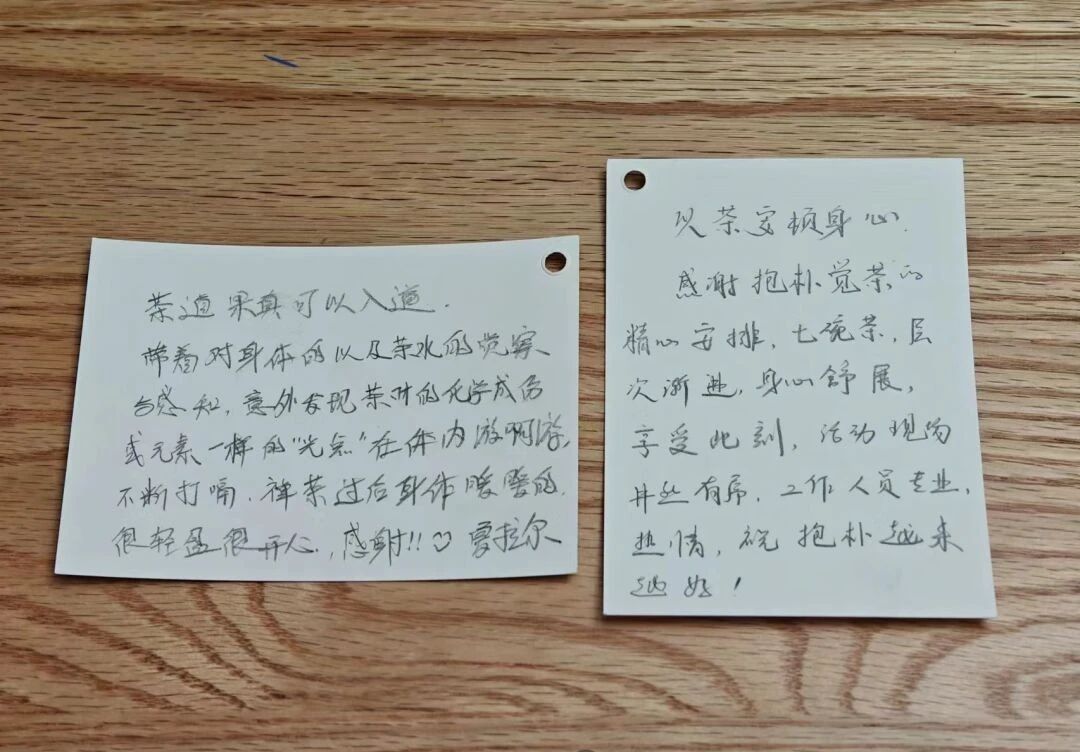 茶道果真可以入道.
带着对身体的以及茶水的觉察
与感知,意外发现茶叶的化学成份
或元素一样的"光点"在体内游啊游,
不断打嗝.禅茶过后身体暖暖的,
很轻盈很开心,感谢!!♡ 夏拉尔
以茶安顿身心.
感谢抱朴觉茶的
精心安排,七碗茶,层
次渐进,身心舒展,
享受此刻,活动现场
井然有序,工作人员专业,
热情,祝抱朴越来
越好!